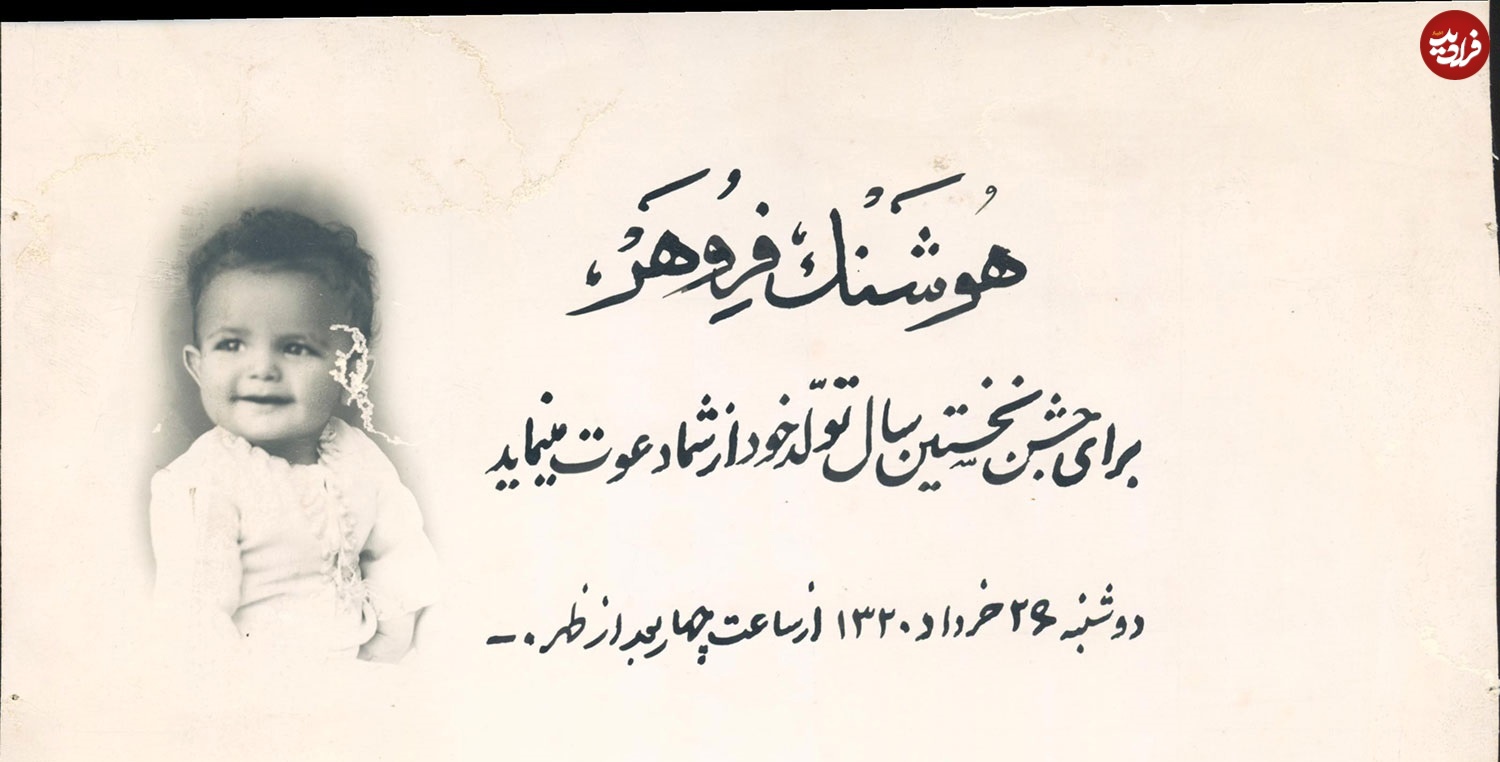 فرادید
هُوشَنْك فِرُوهَرْ
برای جشن نخستین سال تولّد خود از شما دعوت مینماید
دوشنبه ۲۶ خرداد ۱۳۲۰ از ساعت چهار بعد از ظهر .ـ